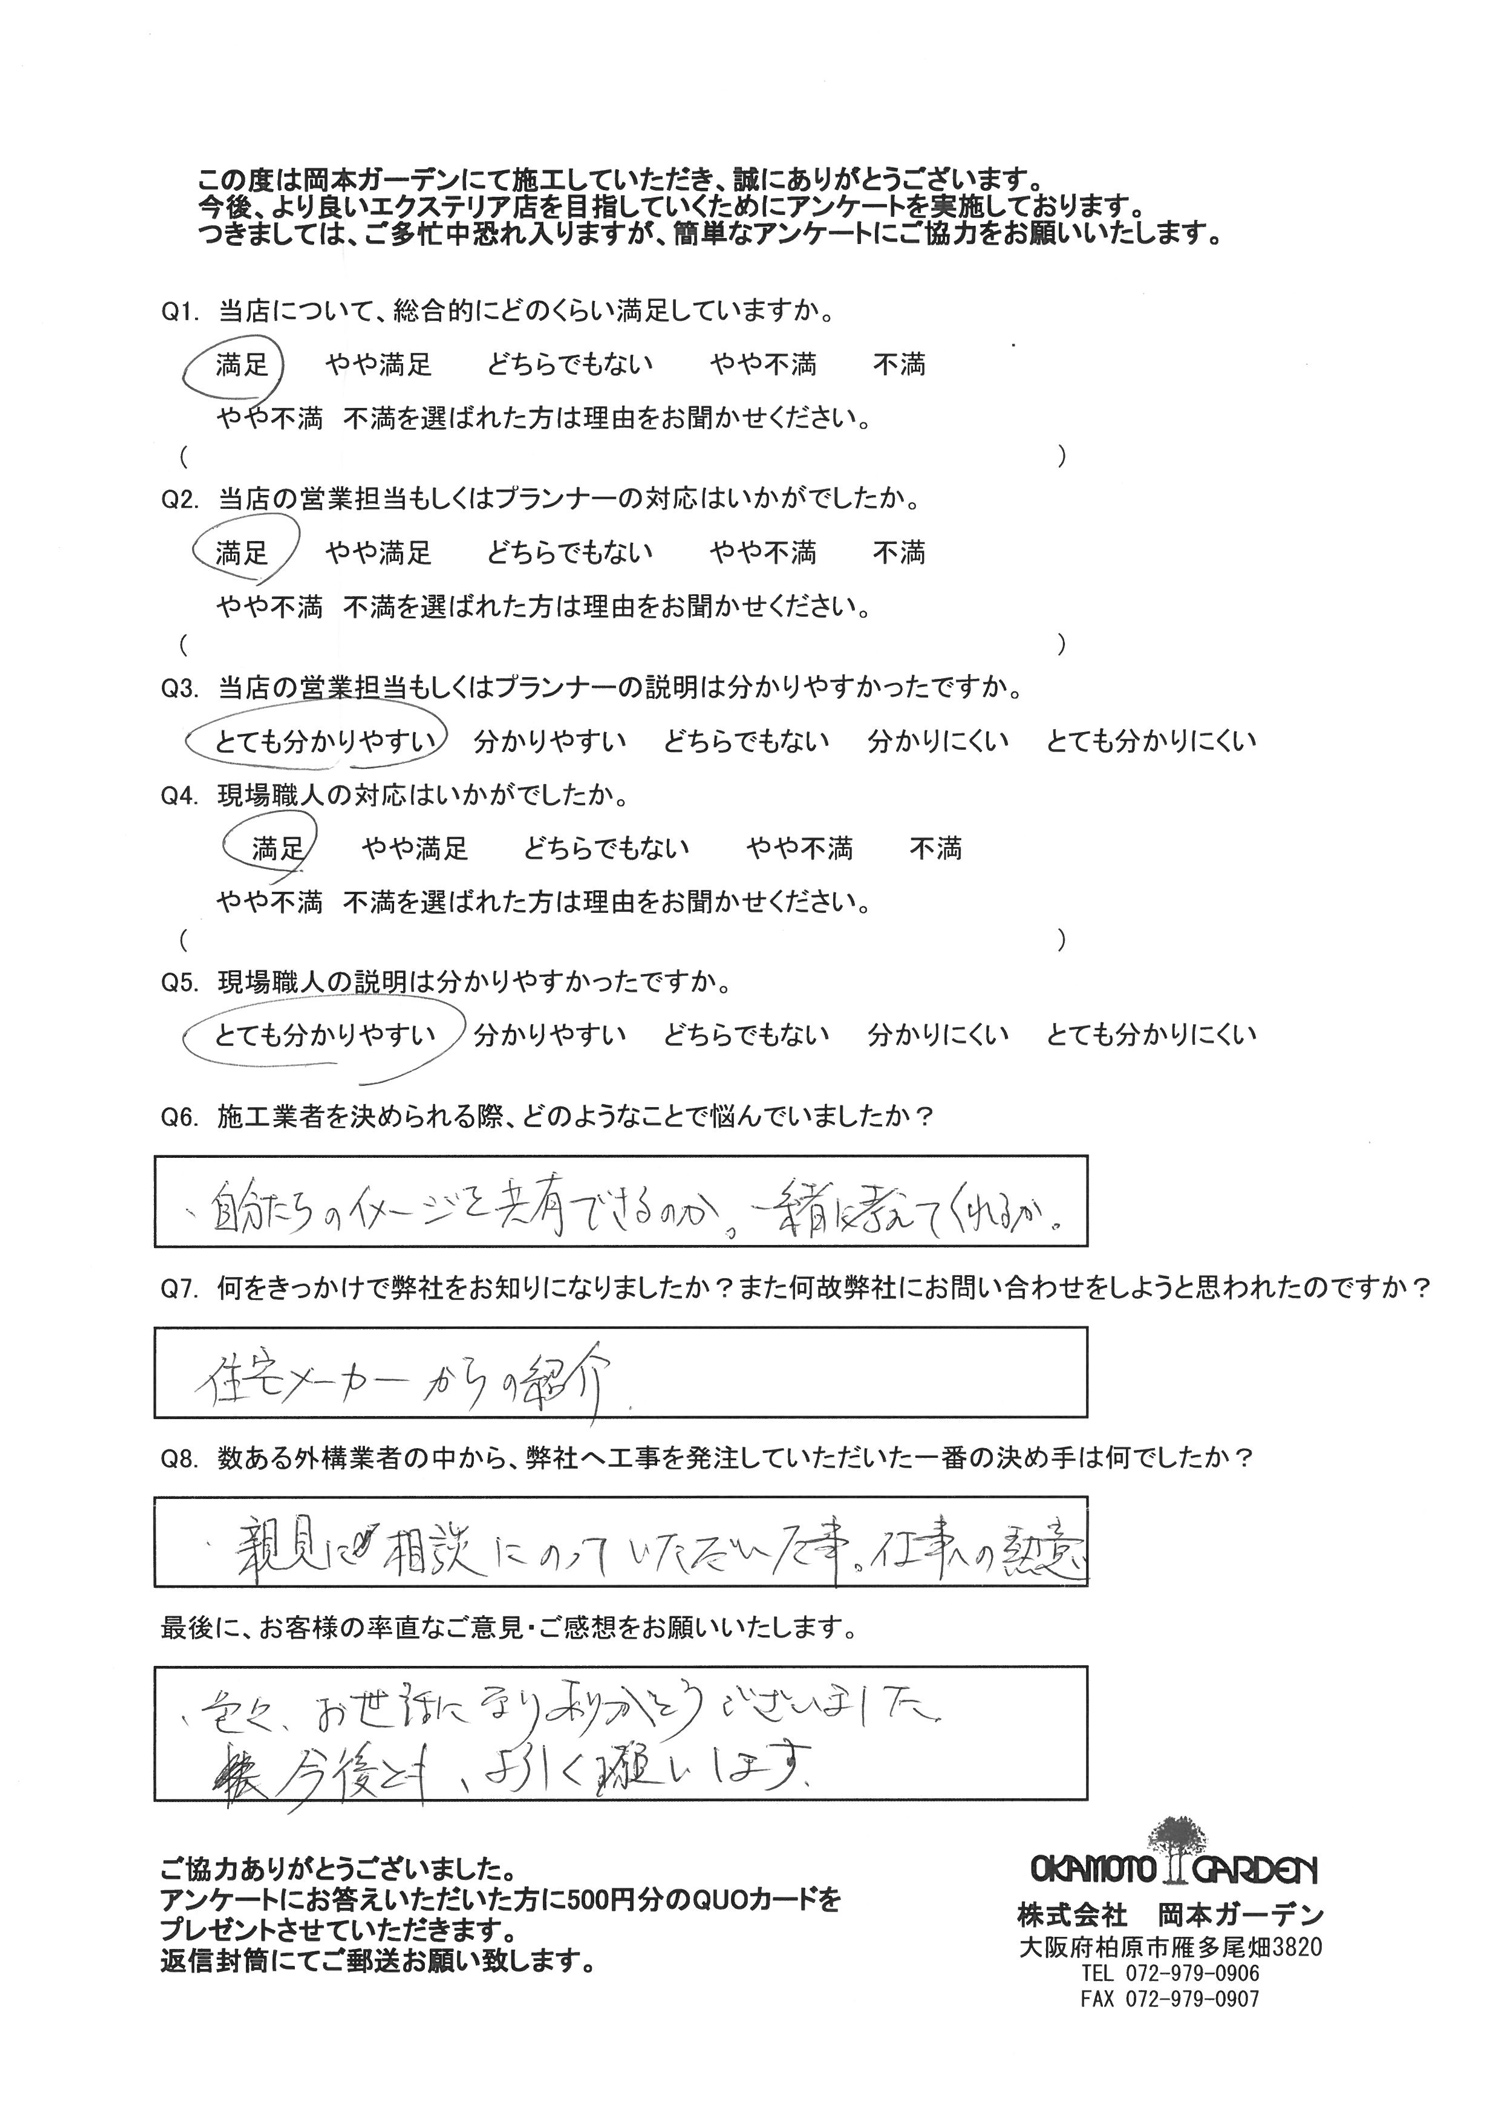 この度は岡本ガーデンにて施工していただき、誠にありがとうございます。
今後、より良いエクステリア店を目指していくためにアンケートを実施しております。
つきましては、ご多忙中恐れ入りますが、簡単なアンケートにご協力をお願いいたします。
Q1. 当店について、総合的にどのくらい満足していますか。
満足 やや満足 どちらでもない やや不満 不満
やや不満 不満を選ばれた方は理由をお聞かせください。
( )
Q2. 当店の営業担当もしくはプランナーの対応はいかがでしたか。
満足 やや満足 どちらでもない やや不満 不満
やや不満 不満を選ばれた方は理由をお聞かせください。
( )
Q3. 当店の営業担当もしくはプランナーの説明は分かりやすかったですか。
とても分かりやすい 分かりやすい どちらでもない 分かりにくい とても分かりにくい
Q4. 現場職人の対応はいかがでしたか。
満足 やや満足 どちらでもない やや不満 不満
やや不満 不満を選ばれた方は理由をお聞かせください。
( )
Q5. 現場職人の説明は分かりやすかったですか。
とても分かりやすい 分かりやすい どちらでもない 分かりにくい とても分かりにくい
Q6. 施工業者を決められる際、どのようなことで悩んでいましたか?
、自分たちのイメージを共有できるのか。一緒に考えてくれるか。
Q7. 何をきっかけで弊社をお知りになりましたか?また何故弊社にお問い合わせをしようと思われたのですか?
住宅メーカーからの紹介.
Q8. 数ある外構業者の中から、弊社へ工事を発注していただいた一番の決め手は何でしたか?
・親見に相談にのっていただいた事。仕事への熱意
最後に、お客様の率直なご意見・ご感想をお願いいたします。
、色々、お世話になりありがとうございました。
今後とも、よろしく願いします。
ご協力ありがとうございました。
アンケートにお答えいただいた方に500円分のQUOカードを
プレゼントさせていただきます。
返信封筒にてご郵送お願い致します。
OKAMOTO GARDEN
株式会社 岡本ガーデン
大阪府柏原市雁多尾畑3820
TEL 072-979-0906
FAX 072-979-0907